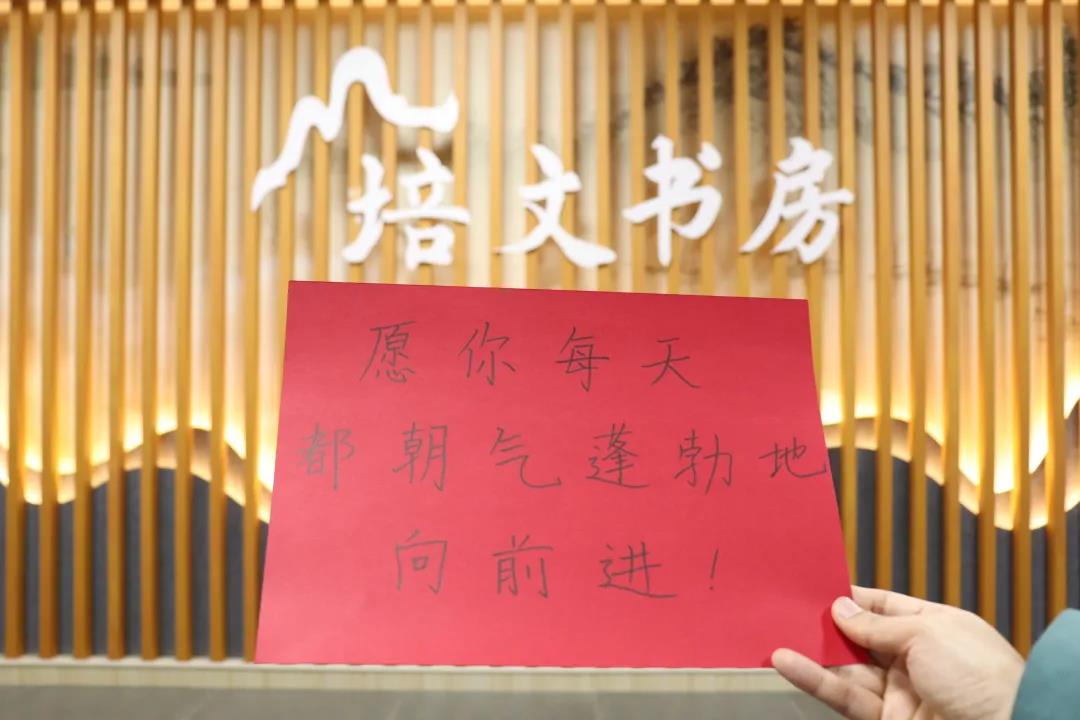 培文书房
愿你每天
都朝气蓬勃地
向前进！